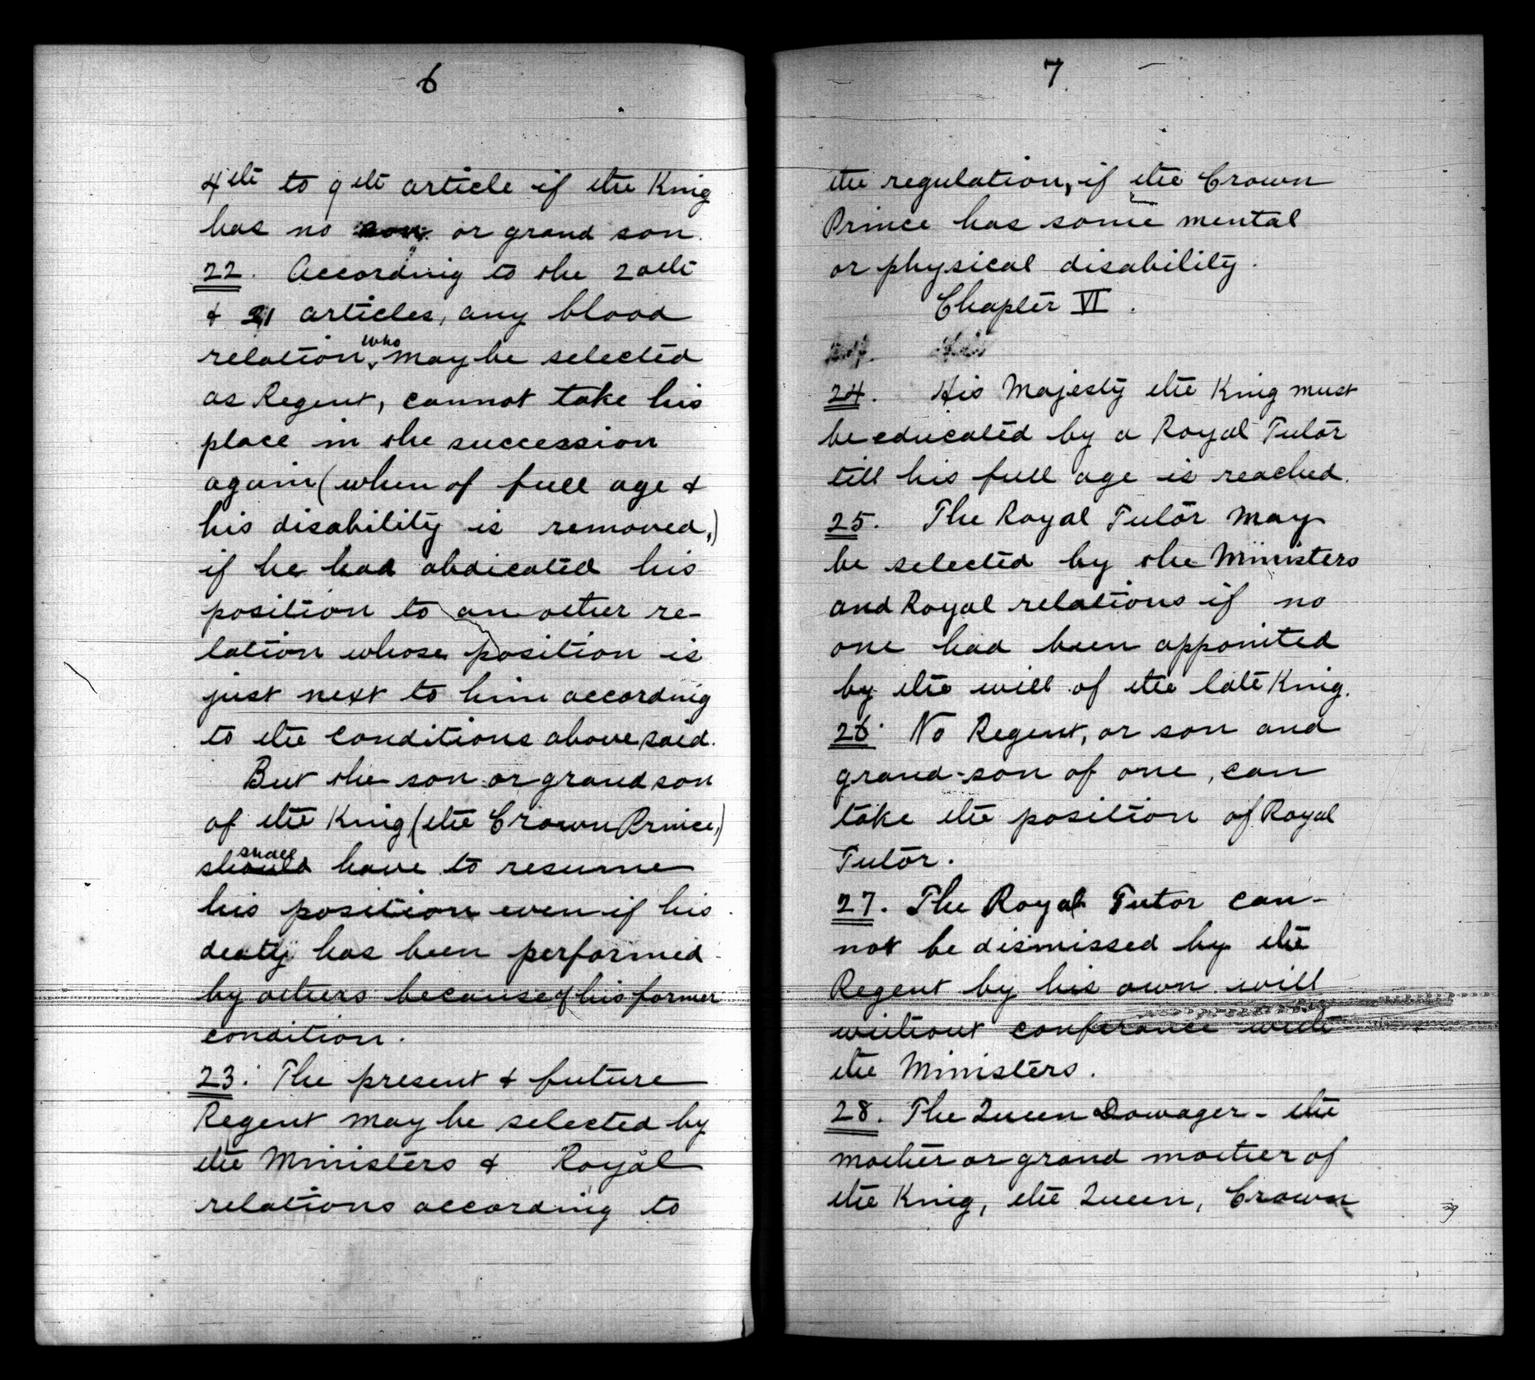 6
4th to 9th article if the King
has no son or grand son.
22. According to the 20th
& 21 articles, any blood
relation, who may be selected
as Regent, cannot take his
place in the succession
again (when of full age &
his disability is removed,)
if he had abdicated his
position to an other re-
lation whose position is
just next to him according
to the conditions above said.
But the son or grand son
of the King (the Crown Prince,)
should shall have to resume
his position even if his
deuty has been performed
by others because of his former
condition.
23. The present & future
Regent may be selected by
the Ministers & Royal
relations according to
7
the regulation, if the Crown
Prince has some mental
or physical disability.
Chapter VI.
24. His Majesty the King must
be educated by a Royal Tutor
till his full age is reached.
25. The Royal Tutor may
be selected by the Ministers
and Royal relations if no
one had been appointed
by the will of the late King.
26. No Regent, or son and
grand-son of one, can
take the position of Royal
Tutor.
27. The Royal Tutor can-
not be dismissed by the
Regent by his own will
without conferance with
the Ministers.
28. The Queen Dowager - the
mother or grand mother of
the King, the Queen, Crown